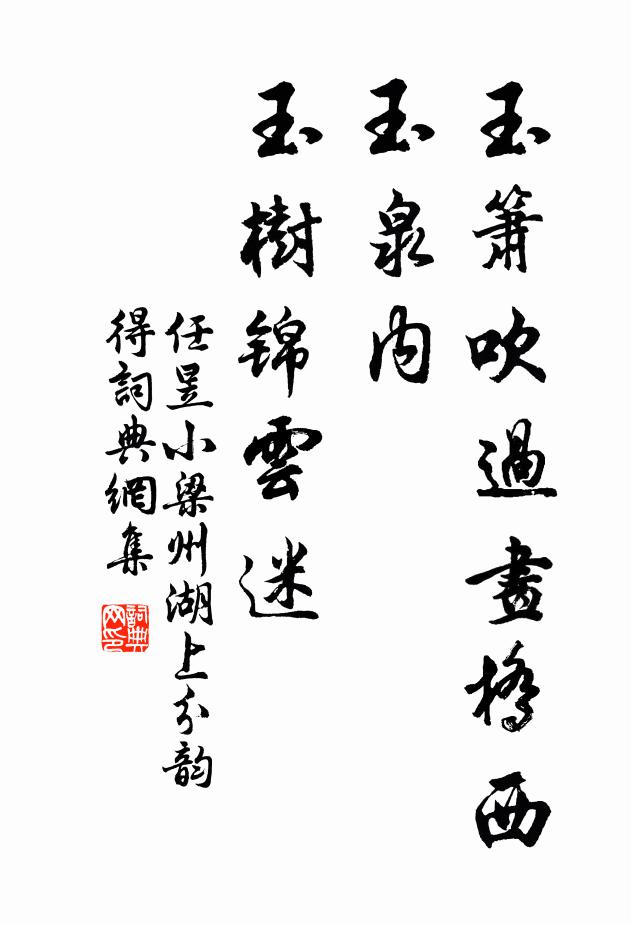 玉簫吹過畫橋西
玉泉内
玉樹錦雲迷
任昱小梁州湖上分韵
得詞典網集
詞典网印